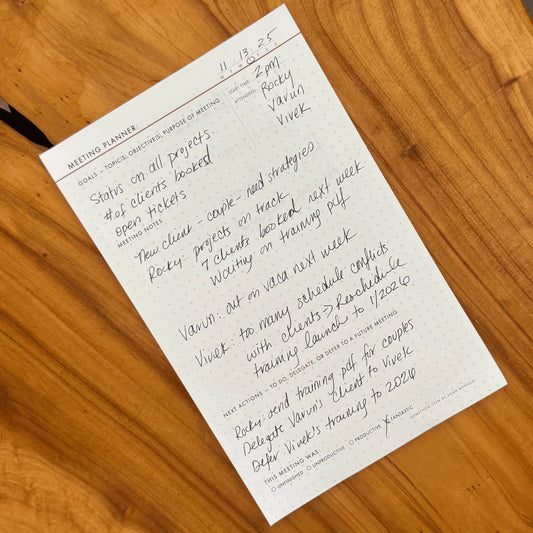 MEETING PLANNER:
11 . 13 . 25
M T W T F S S
GOALS – TOPICS, OBJECTIVES, PURPOSE OF MEETING
START TIME: 2pm
ATTENDEES: Rocky
Varun
Vivek
Status on all projects.
# of clients booked
open tickets
MEETING NOTES
New client - couple - need strategies
Rocky: projects on track
7 clients booked next week
Waiting on training pdf
Varun: out on vaca next week
Vivek: too many schedule conflicts
with clients > Reschedule
training launch to 1/2026
NEXT ACTIONS – TO DO, DELEGATE, OR DEFER TO A FUTURE MEETING
Rocky: send training pdf for couples
Delegate Varun's client to Vivek
Defer Vivek's training to 2026
THIS MEETING WAS:
UNFINISHED UNPRODUCTIVE PRODUCTIVE X FANTASTIC